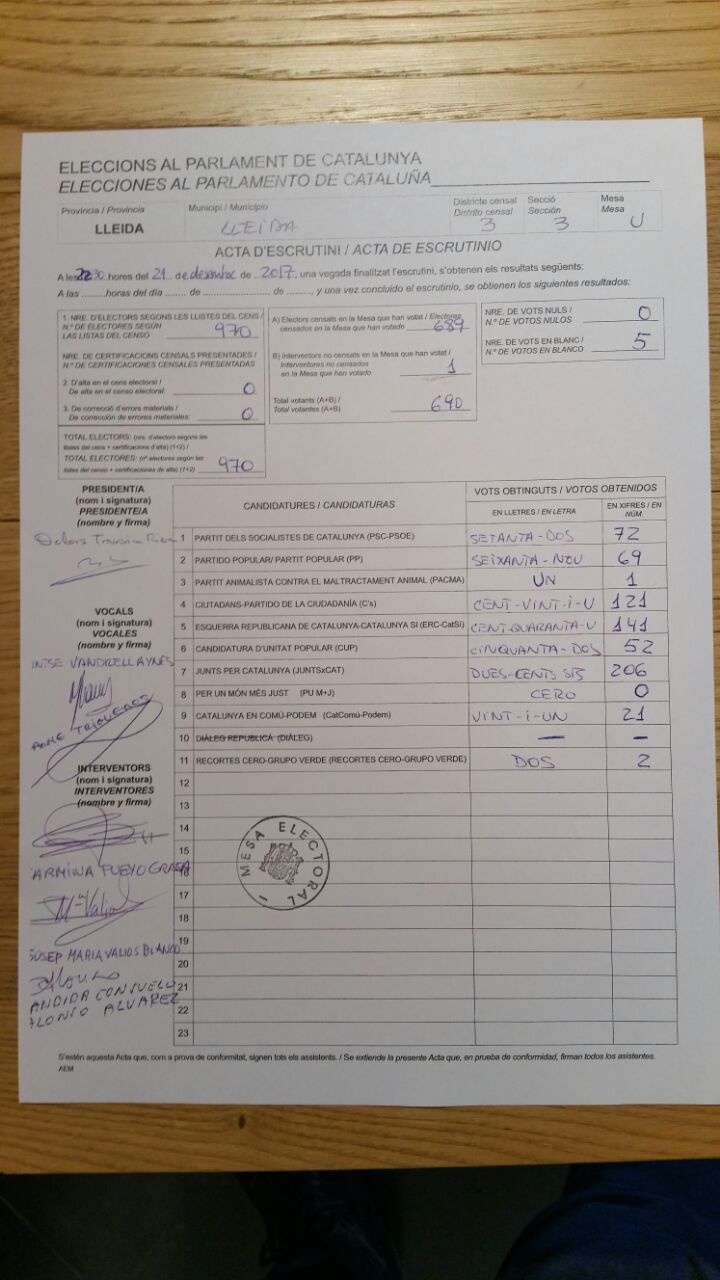 ELECCIONS AL PARLAMENT DE CATALUNYA
ELECCIONES AL PARLAMENTO DE CATALUÑA
Provincia / Provincia
LLEIDA
Municipi / Municipio
LLEIDA
Districte censal
Distrito censal
3
Secció
Sección
3
Mesa
Mesa
U
ACTA D'ESCRUTINI / ACTA DE ESCRUTINIO
A les 22:30 hores del 21 de desembre de 2017, una vegada finalitzat l'escrutini, s'obtenen els resultats següents:
A las ........horas del día ....... de ....................... de ........, y una vez concluido el escrutinio, se obtienen los siguientes resultados:
1. NRE. D'ELECTORS SEGONS LES LLISTES DEL CENS /
N.º DE ELECTORES SEGÚN
LAS LISTAS DEL CENSO 970
NRE. DE CERTIFICACIONS CENSALS PRESENTADES /
N.º DE CERTIFICACIONES CENSALES PRESENTADAS
2. D'alta en el cens electoral /
De alta en el censo electoral: 0
3. De correcció d'errors materials /
De corrección de errores materiales: 0
TOTAL ELECTORS: (nre. d'electors segons les
llistes del cens + certificacions d'alta) (1+2) /
TOTAL ELECTORES: (nº electores según las
listas del censo + certificaciones de alta) (1+2) 970
A) Electors censats en la Mesa que han votat / Electores
censados en la Mesa que han votado 689
B) Interventors no censats en la Mesa que han votat /
Interventores no censados
en la Mesa que han votado 1
Total votants (A+B) /
Total votantes (A+B) 690
NRE. DE VOTS NULS /
N.º DE VOTOS NULOS 0
NRE. DE VOTS EN BLANC /
N.º DE VOTOS EN BLANCO 5
PRESIDENT/A
(nom i signatura)
PRESIDENTE/A
(nombre y firma)
Dolors
VOCALS
(nom i signatura)
VOCALES
(nombre y firma)
VANDRELL AYNÉS
INTERVENTORS
(nom i signatura)
INTERVENTORES
(nombre y firma)
ARMINA PUEYO GRASA
Mª Valios
JOSEP MARIA VALIOS BLANCO
ANDIDA CONSUELO
LONSO ALVAREZ
CANDIDATURES / CANDIDATURAS
VOTS OBTINGUTS / VOTOS OBTENIDOS
EN LLETRES / EN LETRA
EN XIFRES / EN NÚM.
1 PARTIT DELS SOCIALISTES DE CATALUNYA (PSC-PSOE) SETANTA-DOS 72
2 PARTIDO POPULAR/ PARTIT POPULAR (PP) SEIXANTA-NOU 69
3 PARTIT ANIMALISTA CONTRA EL MALTRACTAMENT ANIMAL (PACMA) UN 1
4 CIUTADANS-PARTIDO DE LA CIUDADANÍA (C's) CENT-VINT-I-U 121
5 ESQUERRA REPUBLICANA DE CATALUNYA-CATALUNYA SÍ (ERC-CatSí) CENT QUARANTA-U 141
6 CANDIDATURA D'UNITAT POPULAR (CUP) CINQUANTA-DOS 52
7 JUNTS PER CATALUNYA (JUNTSxCAT) DUES-CENTS SIS 206
8 PER UN MÓN MÉS JUST (PU M+J) CERO 0
9 CATALUNYA EN COMÚ-PODEM (CatComú-Podem) VINT-I-UN 21
10 DIÀLEG REPUBLICÀ (DIÀLEG) — —
11 RECORTES CERO-GRUPO VERDE (RECORTES CERO-GRUPO VERDE) DOS 2
12
13
14
15
16
17
18
19
20
21
22
23
MESA ELECTORAL
S'estén aquesta Acta que, com a prova de conformitat, signen tots els assistents. / Se extiende la presente Acta que, en prueba de conformidad, firman todos los asistentes.
AEM